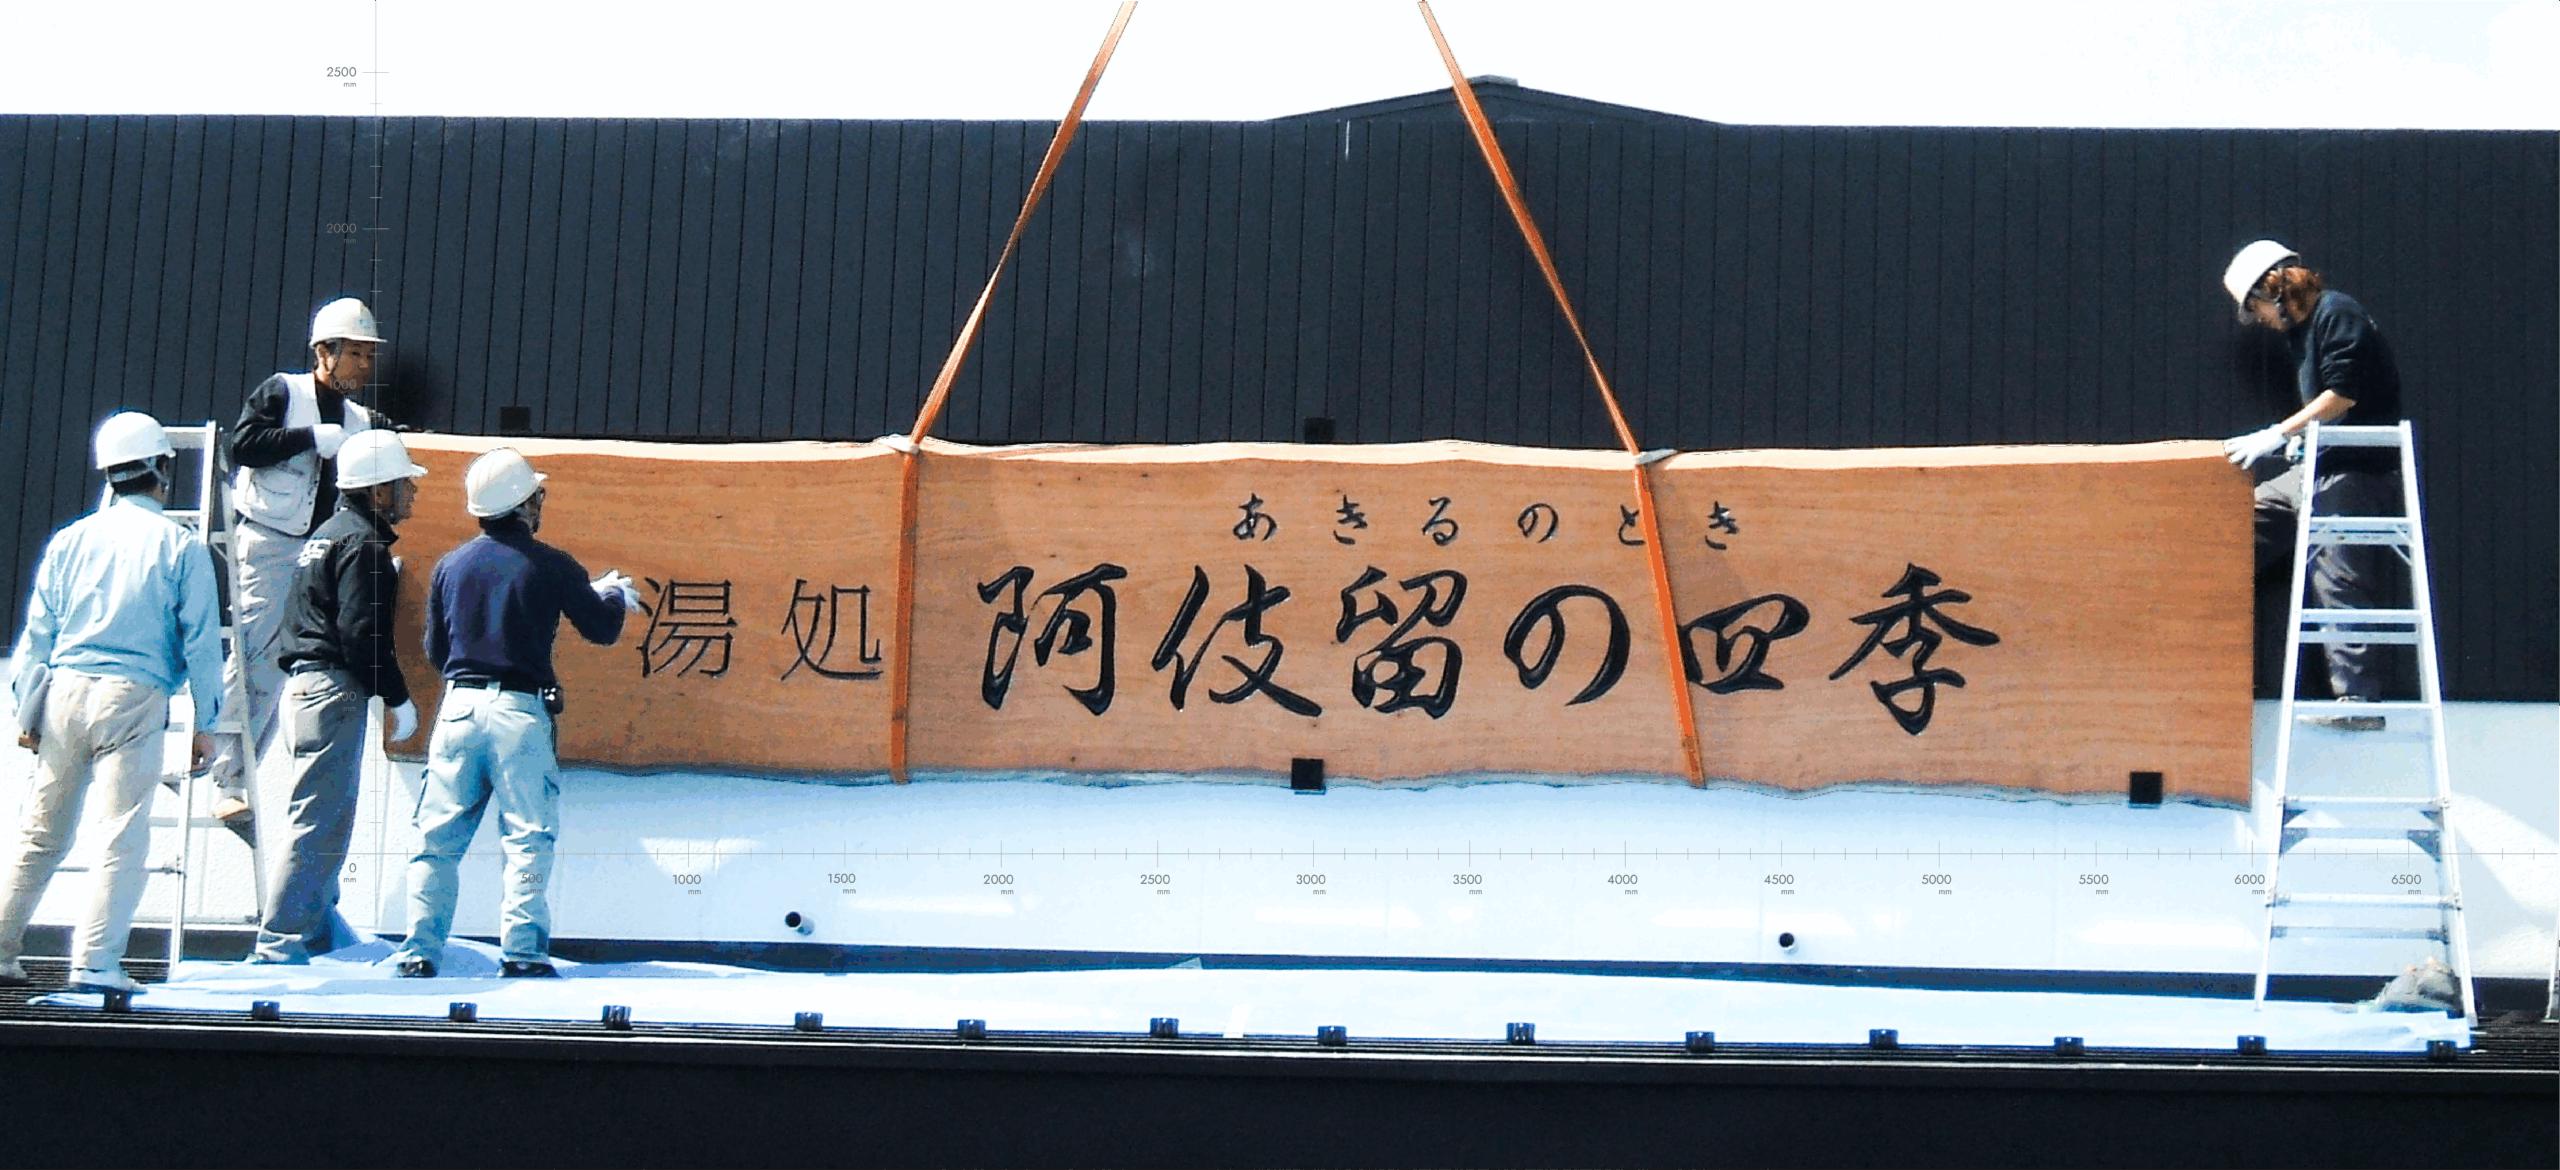 あきるのとき
湯処 阿伎留の四季
2500
mm
2000
mm
1000
0
mm
500
mm
1000
mm
1500
mm
2000
mm
2500
mm
3000
mm
3500
mm
4000
mm
4500
mm
5000
mm
5500
mm
6000
mm
6500
mm